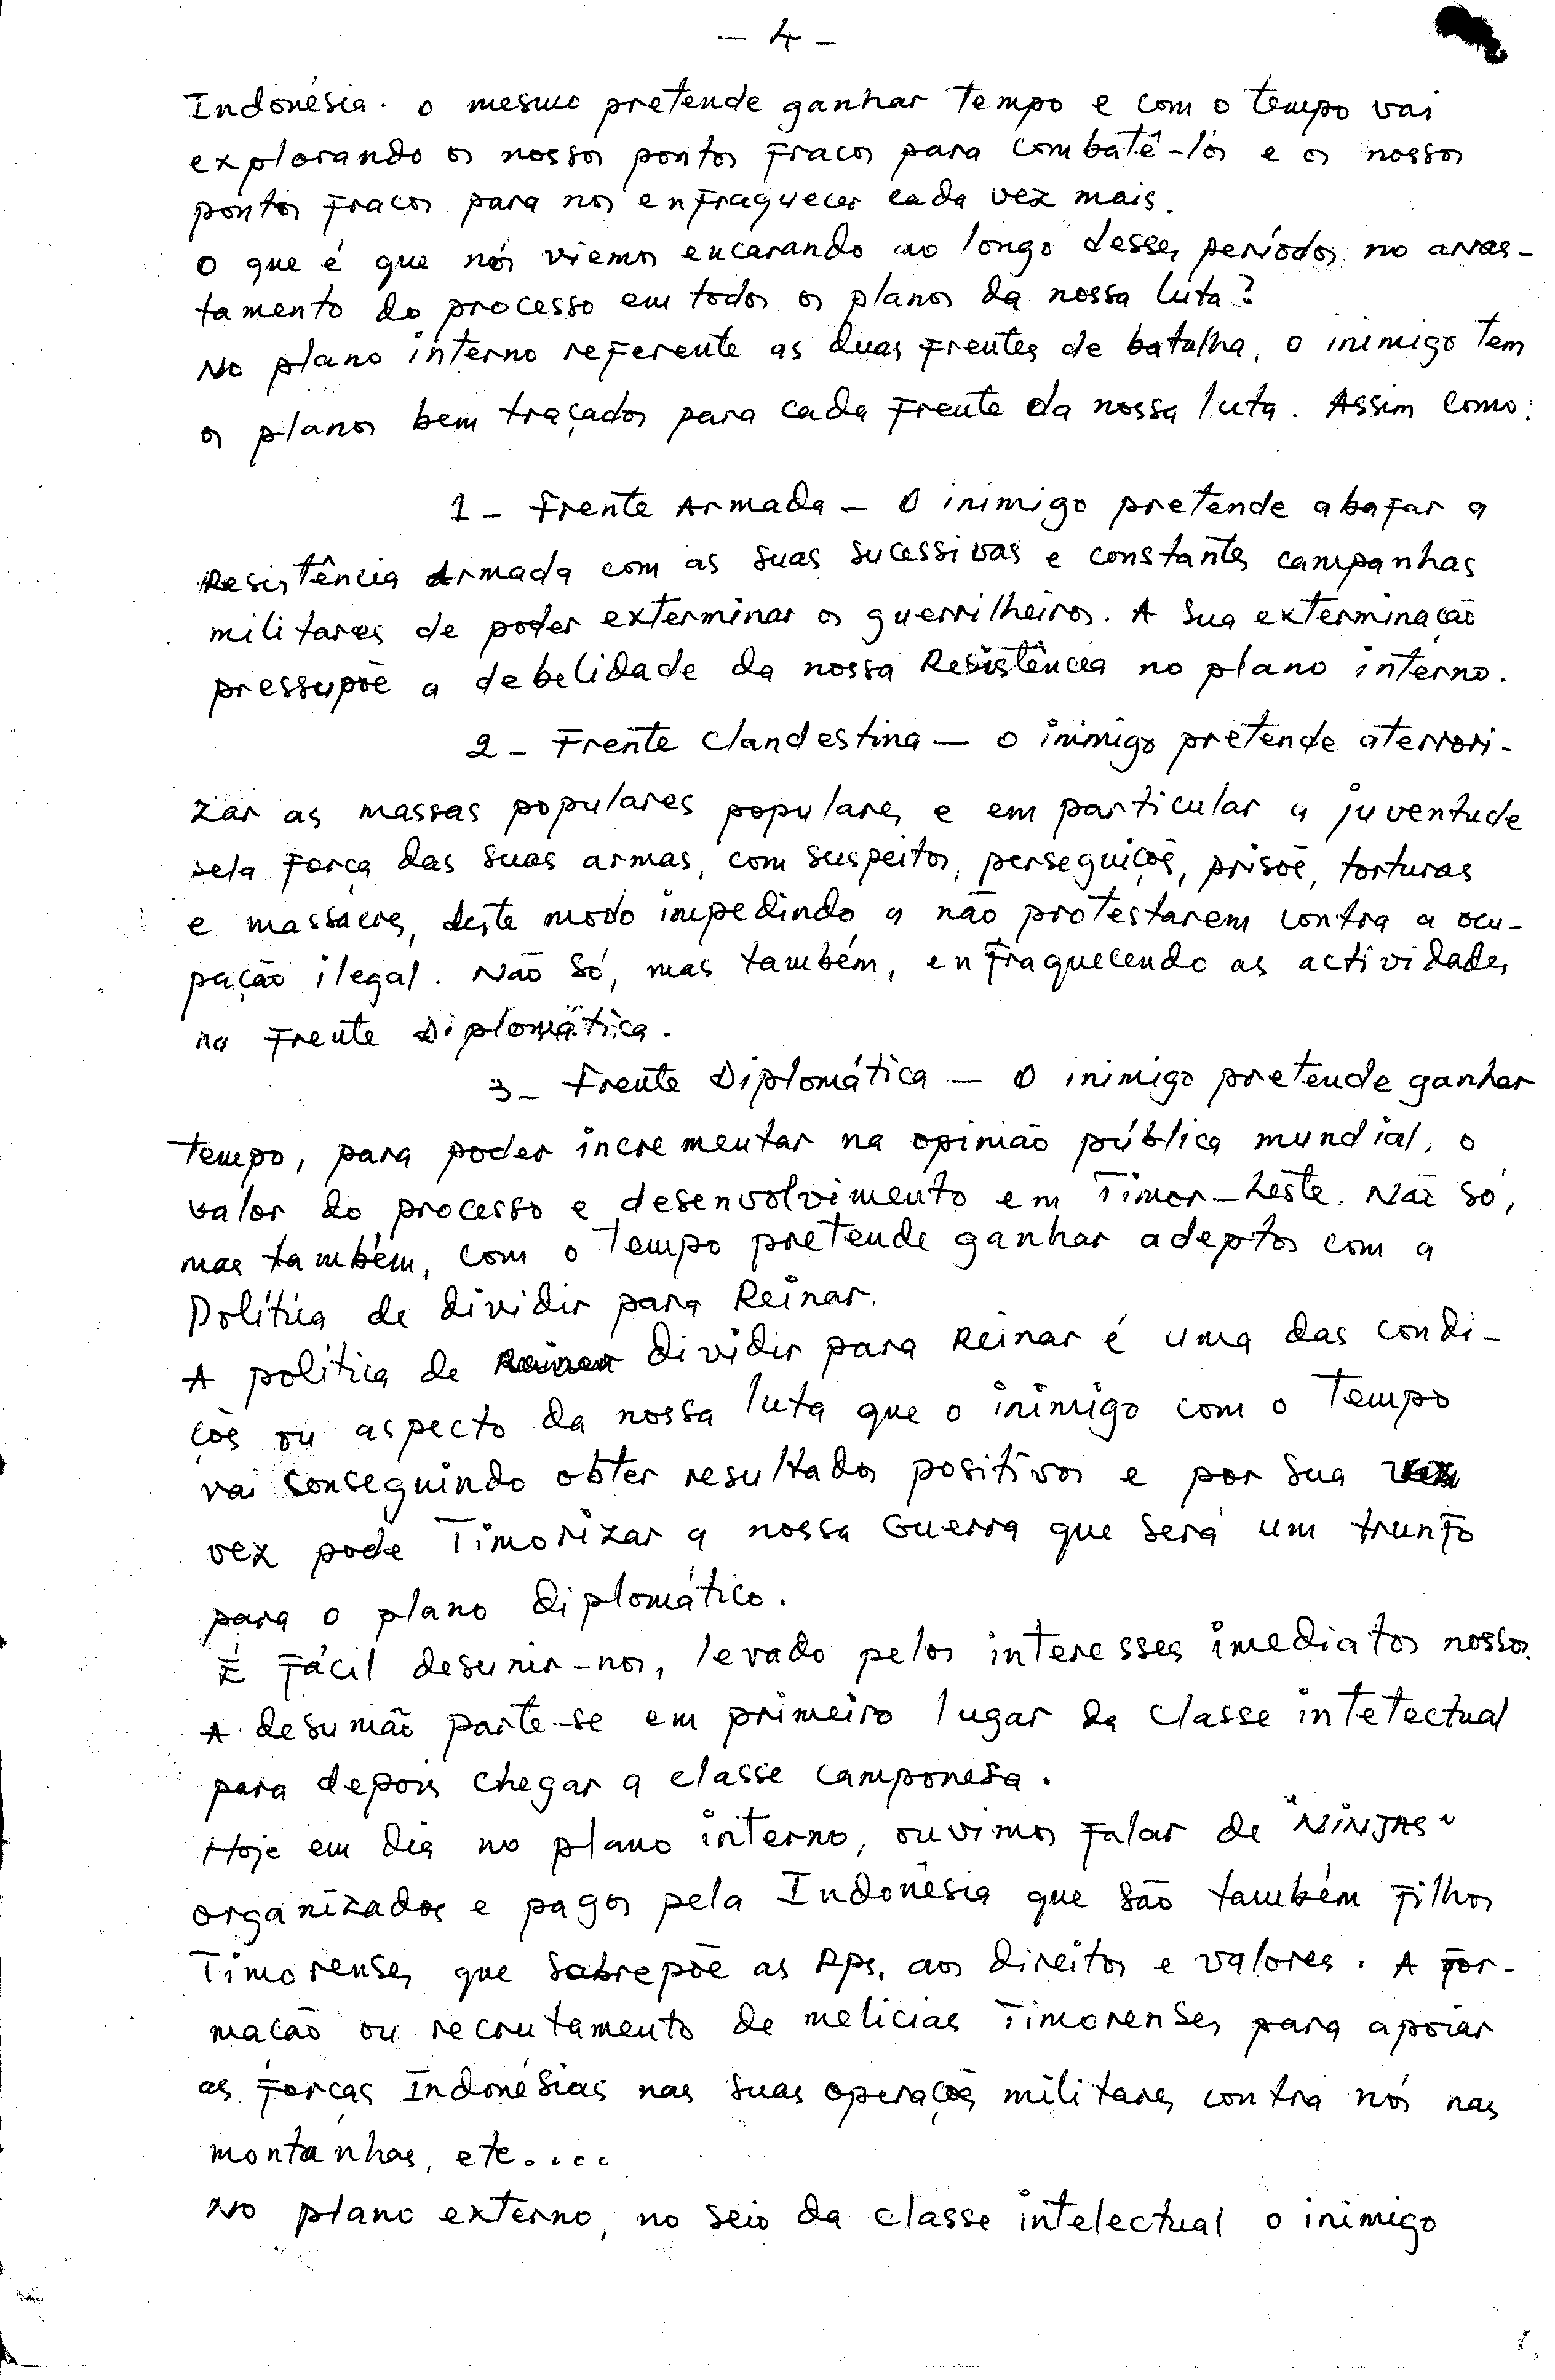 - 4 -
Indonésia. O mesmo pretende ganhar tempo e com o tempo vai
explorando os nossos pontos fracos para combatê-lós e os nossos
pontos fracos para nos enfraquecer cada vez mais.
O que é que nós viemos encarando ao longo desses períodos no arras-
tamento do processo em todos os planos da nossa luta?
No plano interno referente as duas frentes de batalha, o inimigo tem
os planos bem traçados para cada frente da nossa luta. Assim como:
1 - Frente Armada - O inimigo pretende abafar a
Resistência Armada com as suas sucessivas e constantes campanhas
militares de poder exterminar os guerrilheiros. A sua exterminação
pressupõe a debelidade da nossa Resistência no plano interno.
2 - Frente Clandestina - O inimigo pretende aterrori-
zar as massas populares populares e em particular a juventude
pela força das suas armas, com suspeitos, perseguições, prisõe, torturas
e massacres, deste modo impedindo a não protestarem contra a ocu-
pação ilegal. Não só, mas também, enfraquecendo as actividades
na Frente Diplomática.
3 - Frente Diplomática - O inimigo pretende ganhar
tempo, para poder incrementar na opinião pública mundial, o
valor do processo e desenvolvimento em Timor-Leste. Não só,
mas também, com o tempo pretende ganhar adeptos com a
Política de dividir para Reinar.
A política de dividir para Reinar é uma das condi-
çõs ou aspecto da nossa luta que o inimigo com o tempo
vai conseguindo obter resultados positivos e por sua
vez pode Timorizar a nossa Guerra que será um trunfo
para o plano diplomático.
É fácil desunir-nos, levado pelos interesses imediatos nossos.
A desunião parte-se em primeiro lugar da classe intetectual
para depois chegar a classe camponesa.
Hoje em dia no plano interno, ouvimos falar de "NINJAS"
organizados e pagos pela Indonésia que são também filhos
Timorenses que sobrepõe as Rps. aos direitos e valores. A for-
mação ou recrutamento de melicias Timorenses para apoiar
as forças Indonésias nas suas operações militares contra nós nas
montanhas, etc....
No plano externo, no seio da classe intelectual o inimigo